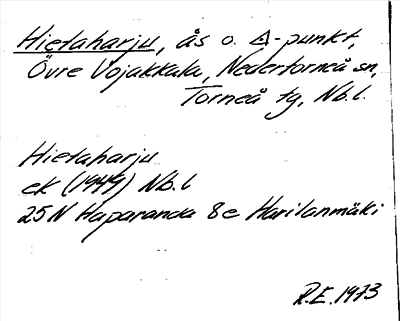 Hietaharju, ås o. △-punkt,
Övre Vojakkala, Nedertorneå sn,
Torneå tg, Nb.l.
Hietaharju
ek (1949) Nb.l
25N Haparanda 8e Harilanmäki
R.E. 1973